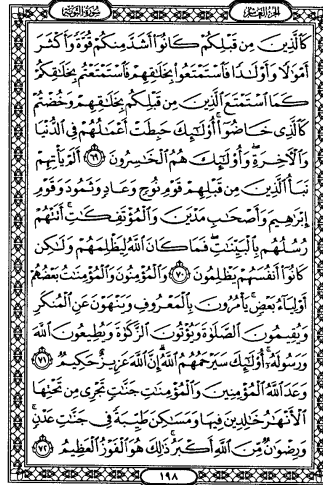 سورة التوبة
الجزء العاشر
كَٱلَّذِينَ مِن قَبْلِكُمْ كَانُوٓا۟ أَشَدَّ مِنكُمْ قُوَّةً وَأَكْثَرَ
أَمْوَٰلًا وَأَوْلَٰدًا فَٱسْتَمْتَعُوا۟ بِخَلَٰقِهِمْ فَٱسْتَمْتَعْتُم بِخَلَٰقِكُمْ
كَمَا ٱسْتَمْتَعَ ٱلَّذِينَ مِن قَبْلِكُم بِخَلَٰقِهِمْ وَخُضْتُمْ
كَٱلَّذِى خَاضُوٓا۟ أُو۟لَٰٓئِكَ حَبِطَتْ أَعْمَٰلُهُمْ فِى ٱلدُّنْيَا
وَٱلْءَاخِرَةِ وَأُو۟لَٰٓئِكَ هُمُ ٱلْخَٰسِرُونَ ٦٩ أَلَمْ يَأْتِهِمْ
نَبَأُ ٱلَّذِينَ مِن قَبْلِهِمْ قَوْمِ نُوحٍ وَعَادٍ وَثَمُودَ وَقَوْمِ
إِبْرَٰهِيمَ وَأَصْحَٰبِ مَدْيَنَ وَٱلْمُؤْتَفِكَٰتِ أَتَتْهُمْ
رُسُلُهُم بِٱلْبَيِّنَٰتِ فَمَا كَانَ ٱللَّهُ لِيَظْلِمَهُمْ وَلَٰكِن
كَانُوٓا۟ أَنفُسَهُمْ يَظْلِمُونَ ٧٠ وَٱلْمُؤْمِنُونَ وَٱلْمُؤْمِنَٰتُ بَعْضُهُمْ
أَوْلِيَآءُ بَعْضٍ يَأْمُرُونَ بِٱلْمَعْرُوفِ وَيَنْهَوْنَ عَنِ ٱلْمُنكَرِ
وَيُقِيمُونَ ٱلصَّلَوٰةَ وَيُؤْتُونَ ٱلزَّكَوٰةَ وَيُطِيعُونَ ٱللَّهَ
وَرَسُولَهُۥٓ أُو۟لَٰٓئِكَ سَيَرْحَمُهُمُ ٱللَّهُ إِنَّ ٱللَّهَ عَزِيزٌ حَكِيمٌ ٧١
وَعَدَ ٱللَّهُ ٱلْمُؤْمِنِينَ وَٱلْمُؤْمِنَٰتِ جَنَّٰتٍ تَجْرِى مِن تَحْتِهَا
ٱلْأَنْهَٰرُ خَٰلِدِينَ فِيهَا وَمَسَٰكِنَ طَيِّبَةً فِى جَنَّٰتِ عَدْنٍ
وَرِضْوَٰنٌ مِّنَ ٱللَّهِ أَكْبَرُ ذَٰلِكَ هُوَ ٱلْفَوْزُ ٱلْعَظِيمُ ٧٢
١٩٨